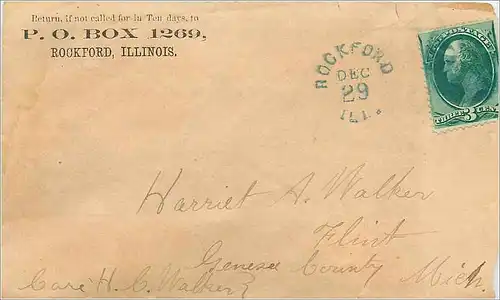 Return, if not called for in Ten days, to
P. O. BOX 1269,
ROCKFORD, ILLINOIS.
ROCKFORD
DEC
29
ILL.
POSTAGE
THREE 3 CEN
Harriet A. Walker
Flint
Genesee County
Mich
Care H. C. Walker